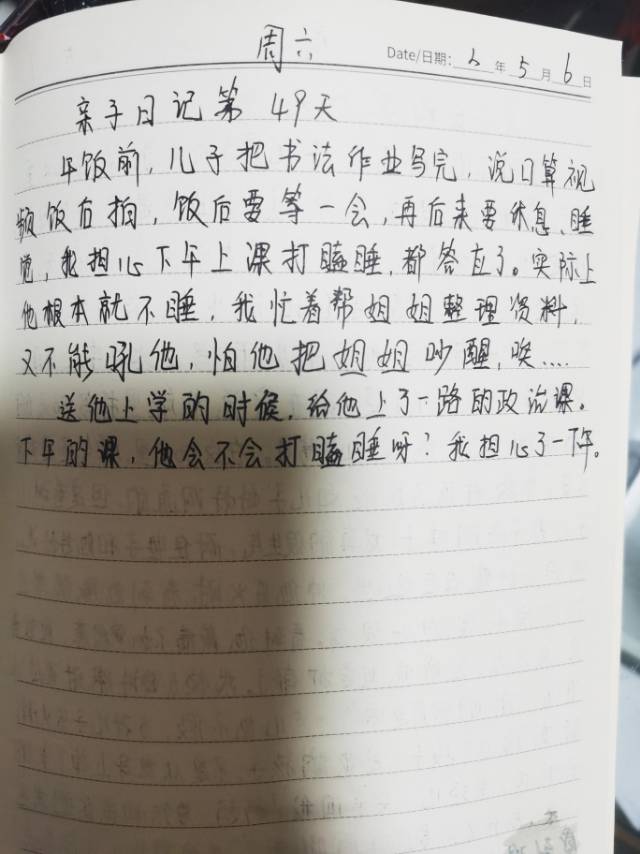 周六 Date/日期: 2 年 5 月 6 日
亲子日记第 49天
午饭前，儿子把书法作业写完，说口算视
频饭后拍，饭后要等一会，再后来要休息、睡
觉，我担心下午上课打瞌睡，都答应了。实际上
他根本就不睡，我忙着帮姐姐整理资料，
又不能吼他，怕他把姐姐吵醒，唉....
送他上学的时候，给他上了一路的政治课。
下午的课，他会不会打瞌睡呀？我担心了一下午。